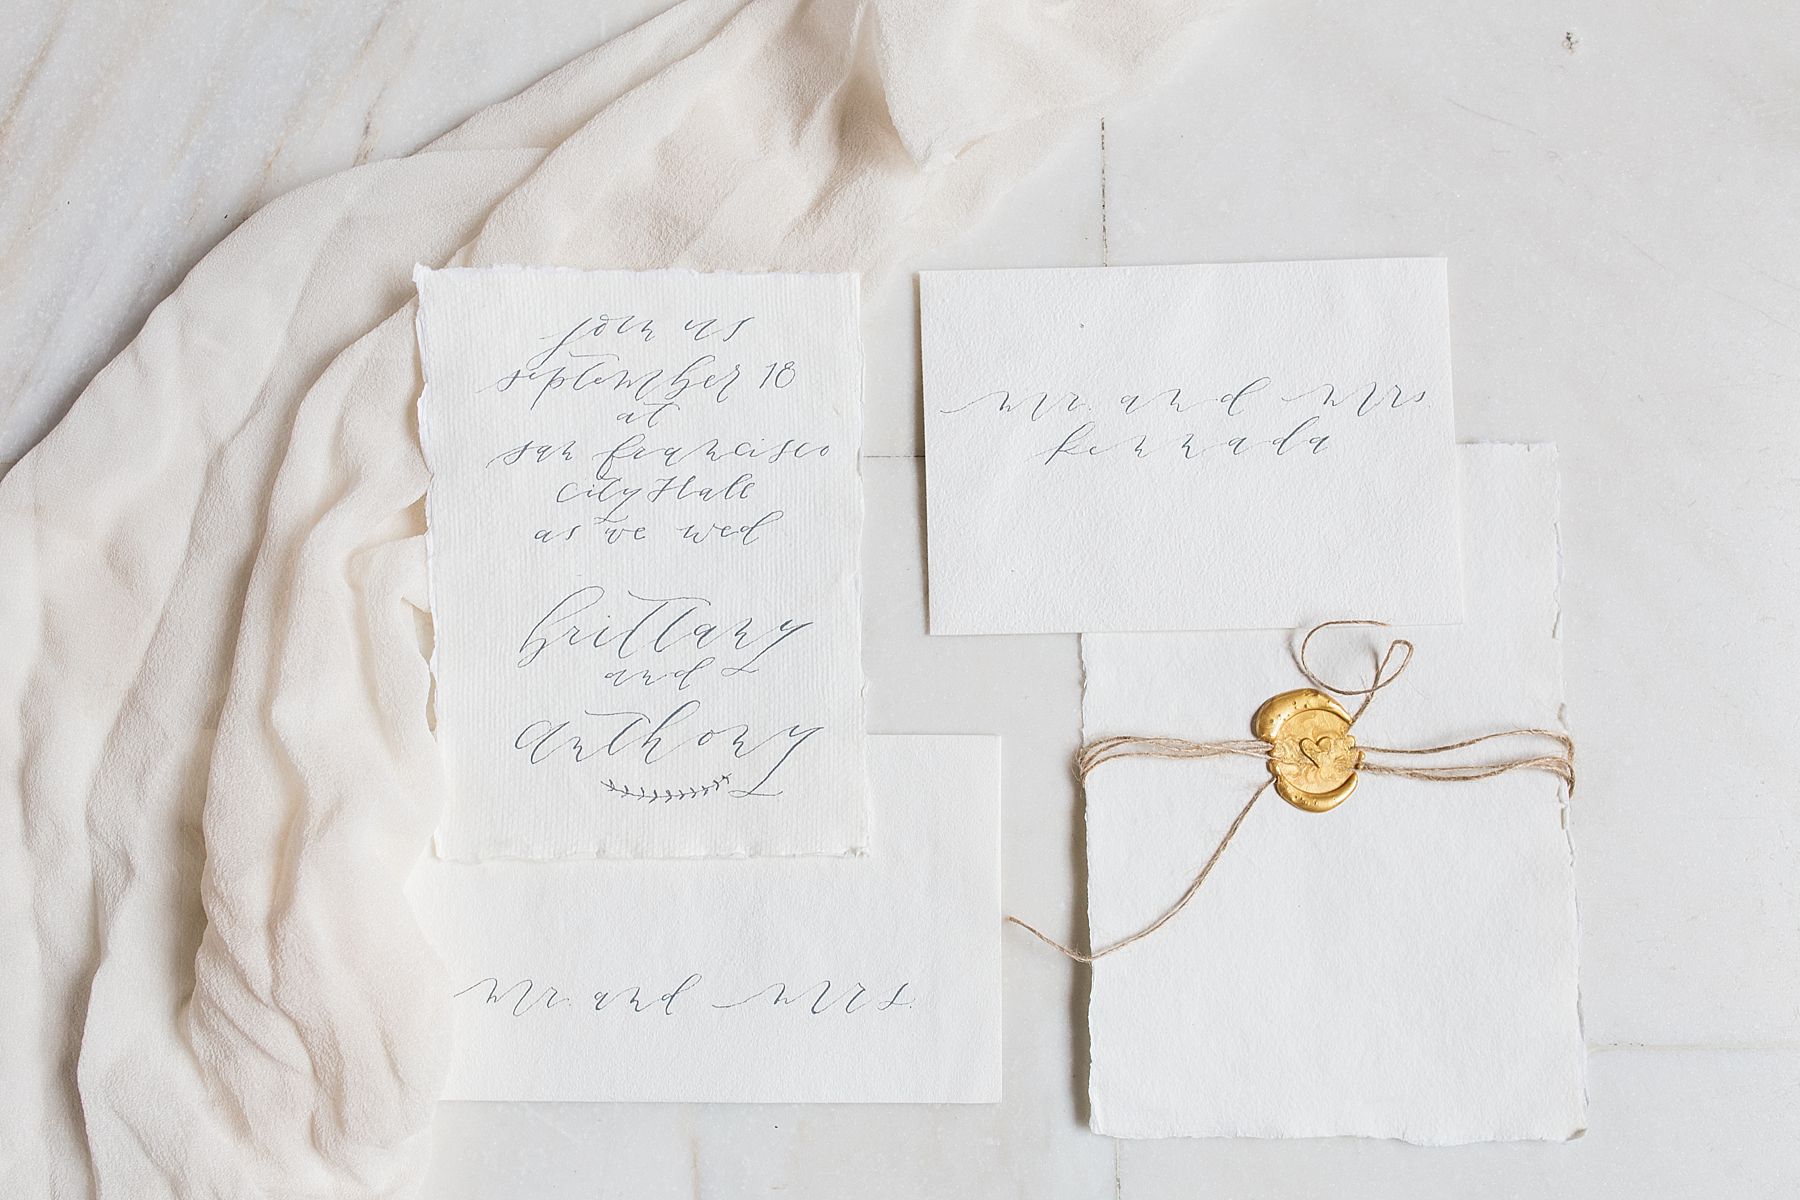 join us
september 18
at
san francisco
City Hall
as we wed
brittany
and
anthony
mr. and mrs.
kennada
mr. and mrs.